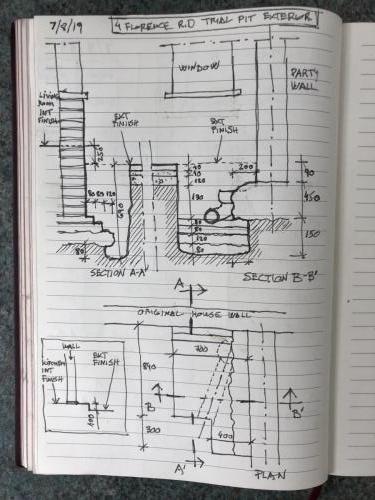 7/8/19
4 FLORENCE RD TRIAL PIT EXTERIOR
WINDOW
PARTY
WALL
LIVING
ROOM
INT
FINISH
EXT
FINISH
EXT
FINISH
250
200
40
40
120
90
80 80 120
640
190
450
80
80
120
80
150
80
SECTION A-A'
SECTION B-B'
A
ORIGINAL HOUSE WALL
WALL
700
KITCHEN
INT
FINISH
EXT
FINISH
840
B
B'
400
300
400
A'
PLAN